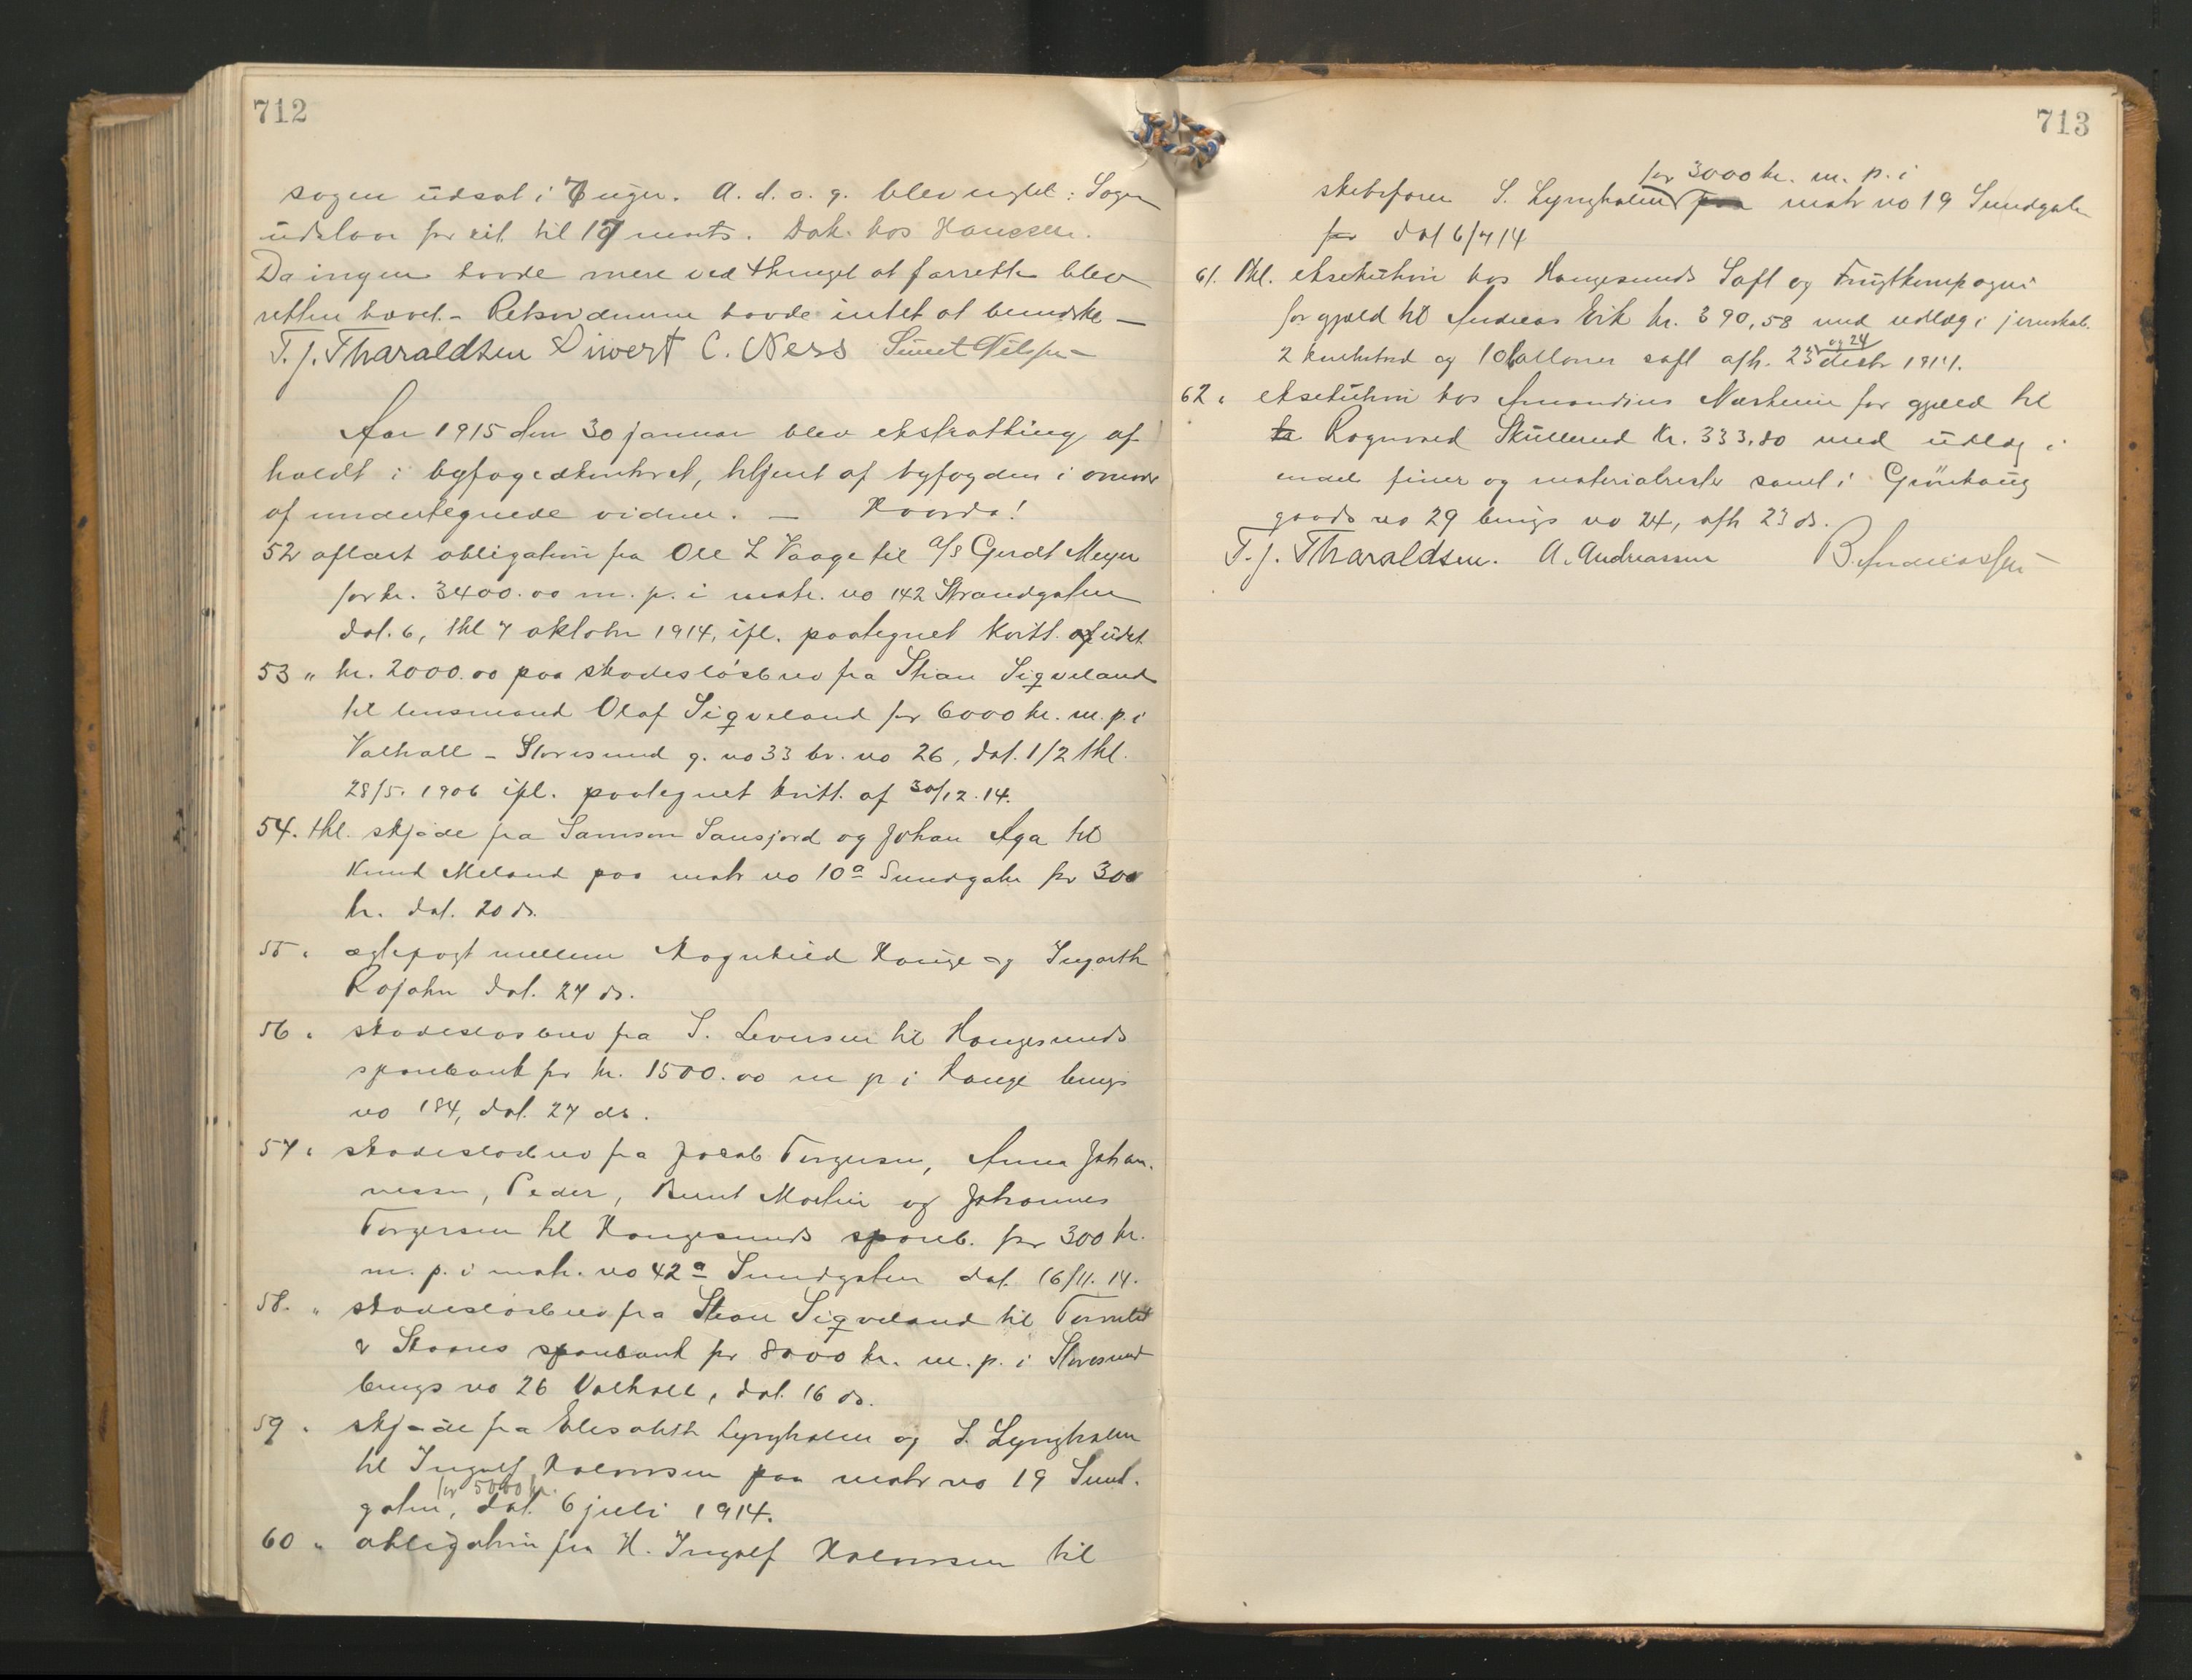 712
sagen udsat i 7 uger. A. d. o. g. blev negtet: Sagen
udstaar for eit. til 17 marts. Dok. hos Hanssen.
Da ingen havde mere ved thinget at forrette blev
retten hævet. – Retsvidnene havde intet at bemerke –
T. J. Tharaldsen Sivert C. Ness
Aar 1915 den 30 januar blev ekstratting af
holdt i byfogedkontoret, betjent af byfogden i overvær
af undertegnede vidner. –
52 aflæst obligation fra Ole L Vaage til A/S Gerdt Meyer
for kr. 3400.00 m. p. i matr. no 142 Strandgaten
dat. 6, thl 7 oktobr 1914, ifl. paategnet kvitt. af udst.
53 " kr. 2000.00 paa skadesløsbrev fra Stian Sigveland
til lensmand Olaf Sigveland for 6000 kr. m. p. i
Valhall – Storesund g. no 33 br. no 26, dat. 1/2 thl.
28/5. 1906 ifl. paategnet kvitt. af 30/12.14.
54. thl. skjøde fra Samson Sausjord og Johan Aga til
Knud Meland paa matr no 10a Sundgaten for 300
kr. dat. 20 ds.
55 " ægtepagt mellem Ragnhild Hauge og Ingarth
Rojahn dat. 27 ds.
56 " skadesløsbrev fra S. Seversen til Haugesunds
sparebank for kr. 1500.00 m p i Hauge brugs
no 184, dat. 27 ds.
57 " skadesløsbrev fra Jacob Torgersen, Anna Johan-
nessen, Peder, Bernt Martin og Johannes
Torgersen til Haugesunds spareb. for 300 kr.
m. p. i matr. no 42a Sundgaten dat. 16/11.14.
58. " skadesløsbrev fra Stian Sigveland til Torvestad
& Skaares sparebank for 8000 kr. m. p. i Storesund
brugs no 26 Valhall, dat. 16 ds.
59 " skjøde fra Elisabeth Lyngholm og S. Lyngholm
til Ingolf Halvorsen paa matr no 19 Sund-
for 5000 kr.
gaten, dat. 6 juli 1914.
60 " obligation fra H. Ingolf Halvorsen til
713
for 3000 kr. m. p. i
skibsfører S. Lyngholm paa matr no 19 Sundgaten
for dat 6/7 14
61. thl. eksekution hos Haugesunds Saft og Frugtkompagni
for gjæld til Andreas Eik kr. 390,58 med udlæg i jernskab.
og 24
2 kontorbord og 10 balloner saft afh. 23 decbr 1914.
62 " eksekution hos Amandius Nærheim for gjæld til
Ragnvald Skullerud kr. 333,80 med udlæg i
endel finer og materialrester samt i Grønhaug
gaards no 29 brugs no 24, afh 23 ds.
T. J. Tharaldsen. A. Andreassen B. Andreassen